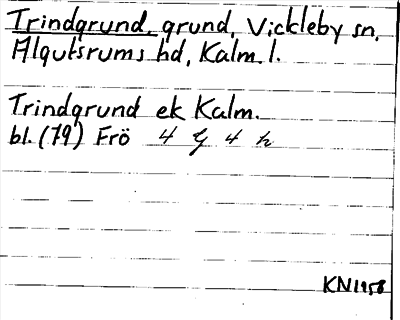 Trindgrund, grund, Vickleby sn,
Algutsrums hd, Kalm. l.
Trindgrund ek Kalm.
bl. (79) Frö 4 G 4 h
KN 1958